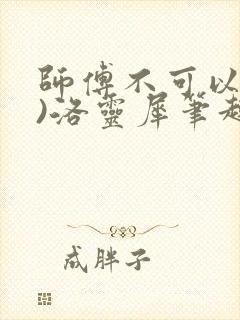 師傅不可以
)洛靈犀筆趣
成胖子